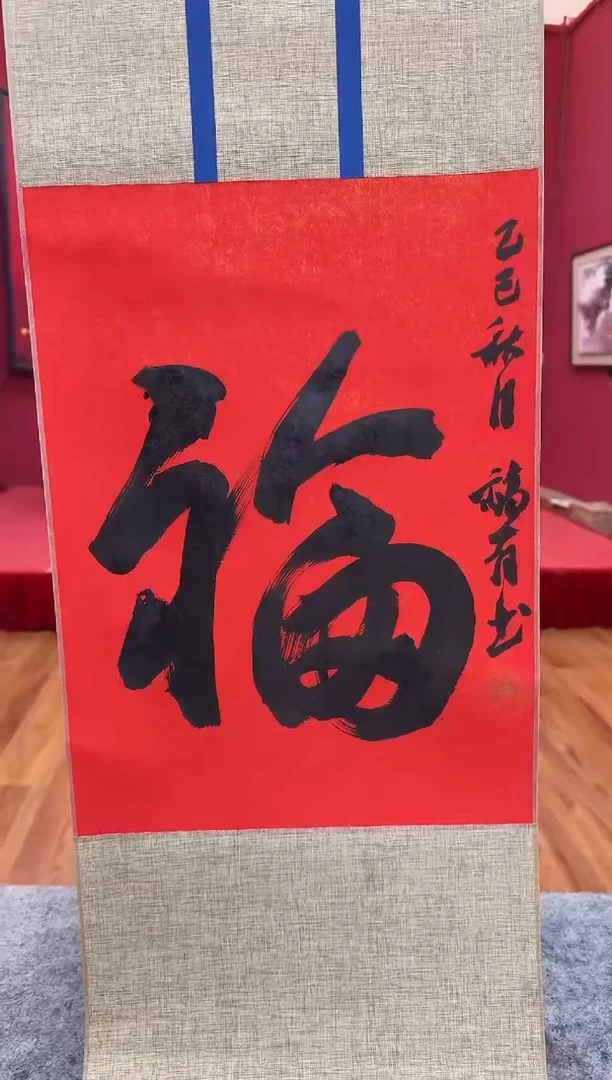 福
乙巳秋月 福有书